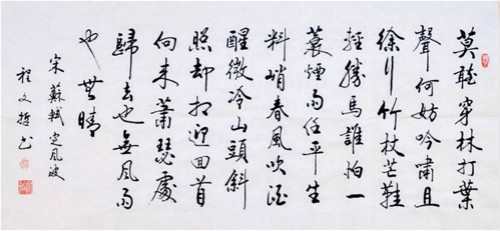 莫聽穿林打葉
聲何妨吟嘯且
徐行竹杖芒鞋
輕勝馬誰怕一
蓑煙雨任平生
料峭春風吹酒
醒微冷山頭斜
照却相迎回首
向来蕭瑟處
歸去也無風雨
也無晴
宋蘇軾定風波
程文書